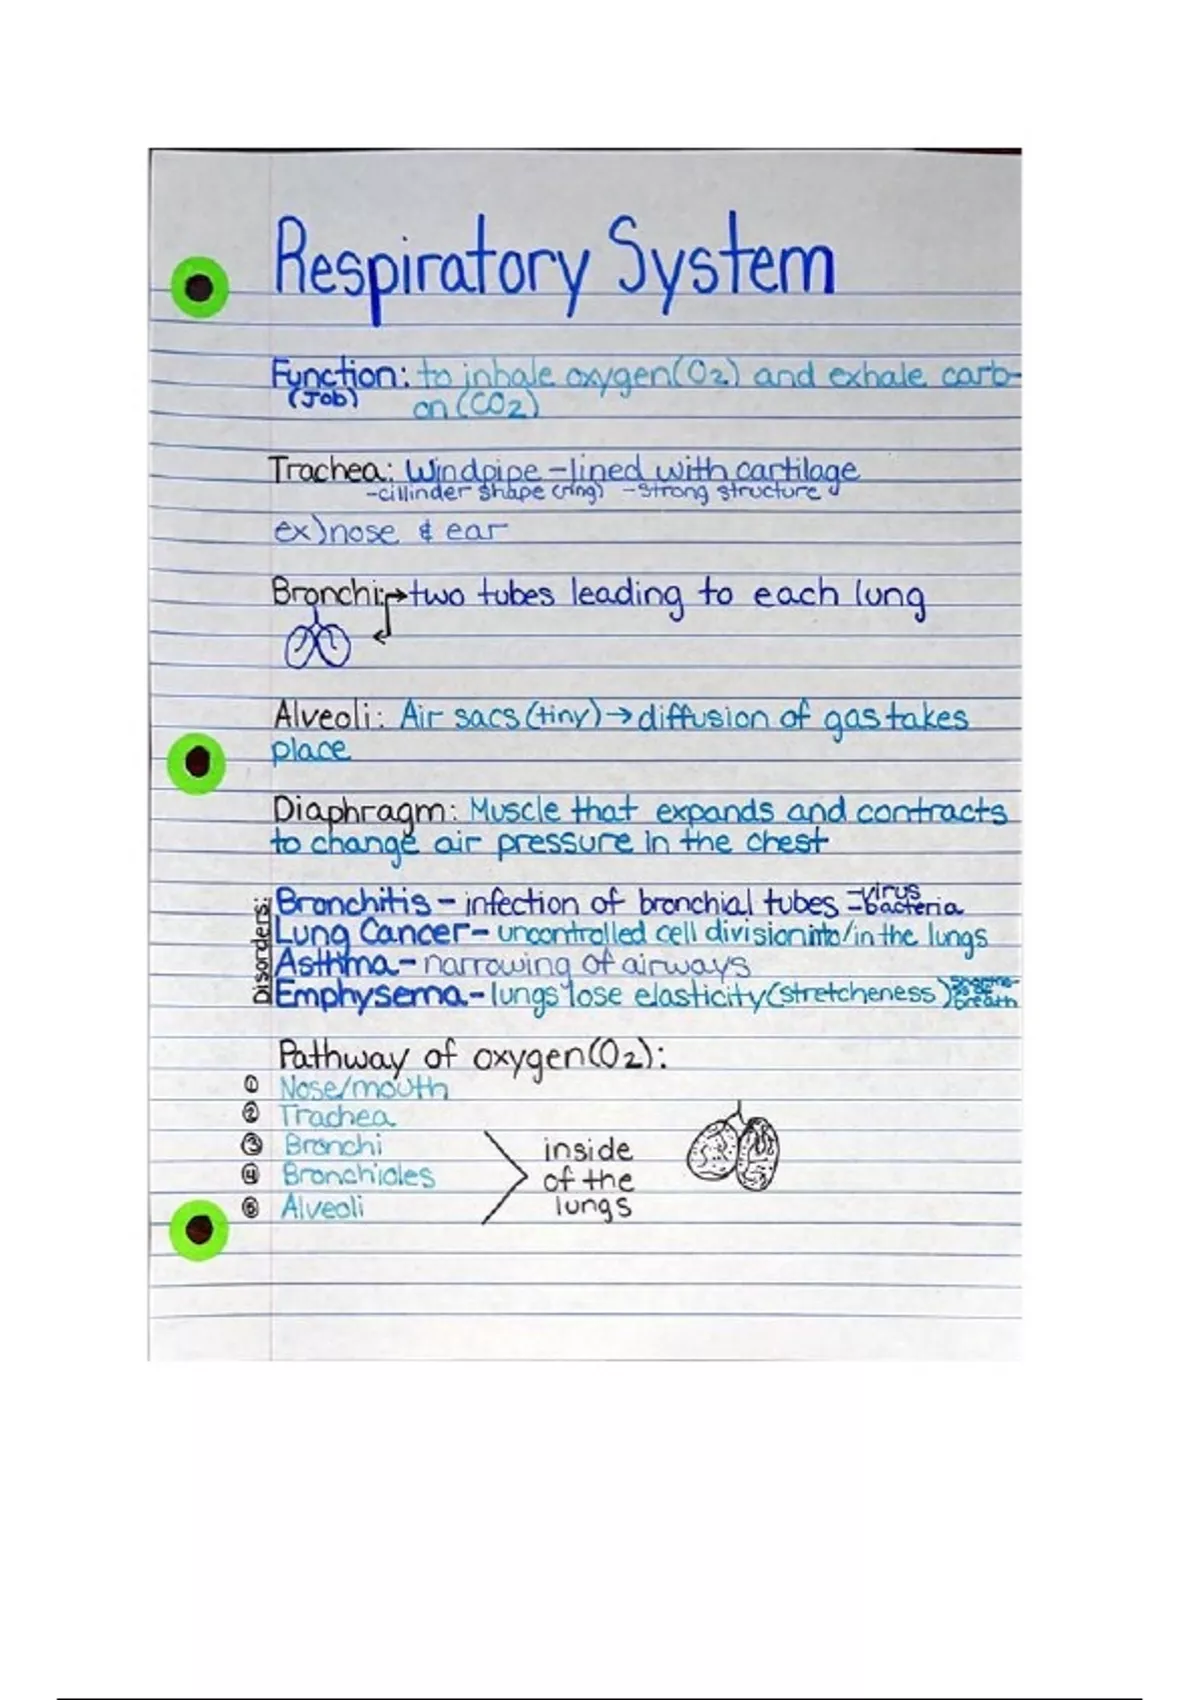 Respiratory System
Function: to inhale oxygen(O2) and exhale carb-
(Job) on (CO2)
Trachea: Windpipe - lined with cartilage
-cillinder shape (ring) - strong structure
ex) nose & ear
Bronchi: → two tubes leading to each lung
Alveoli: Air sacs (tiny) → diffusion of gas takes
place
Diaphragm: Muscle that expands and contracts
to change air pressure in the chest
Disorders:
Bronchitis - infection of bronchial tubes -virus
-bacteria
Lung Cancer - uncontrolled cell division into/in the lungs
Asthma - narrowing of airways
Emphysema - lungs lose elasticity (stretcheness)
breath
Pathway of oxygen(O2):
① Nose/mouth
② Trachea
③ Bronchi
④ Bronchioles
⑤ Alveoli
inside
of the
lungs